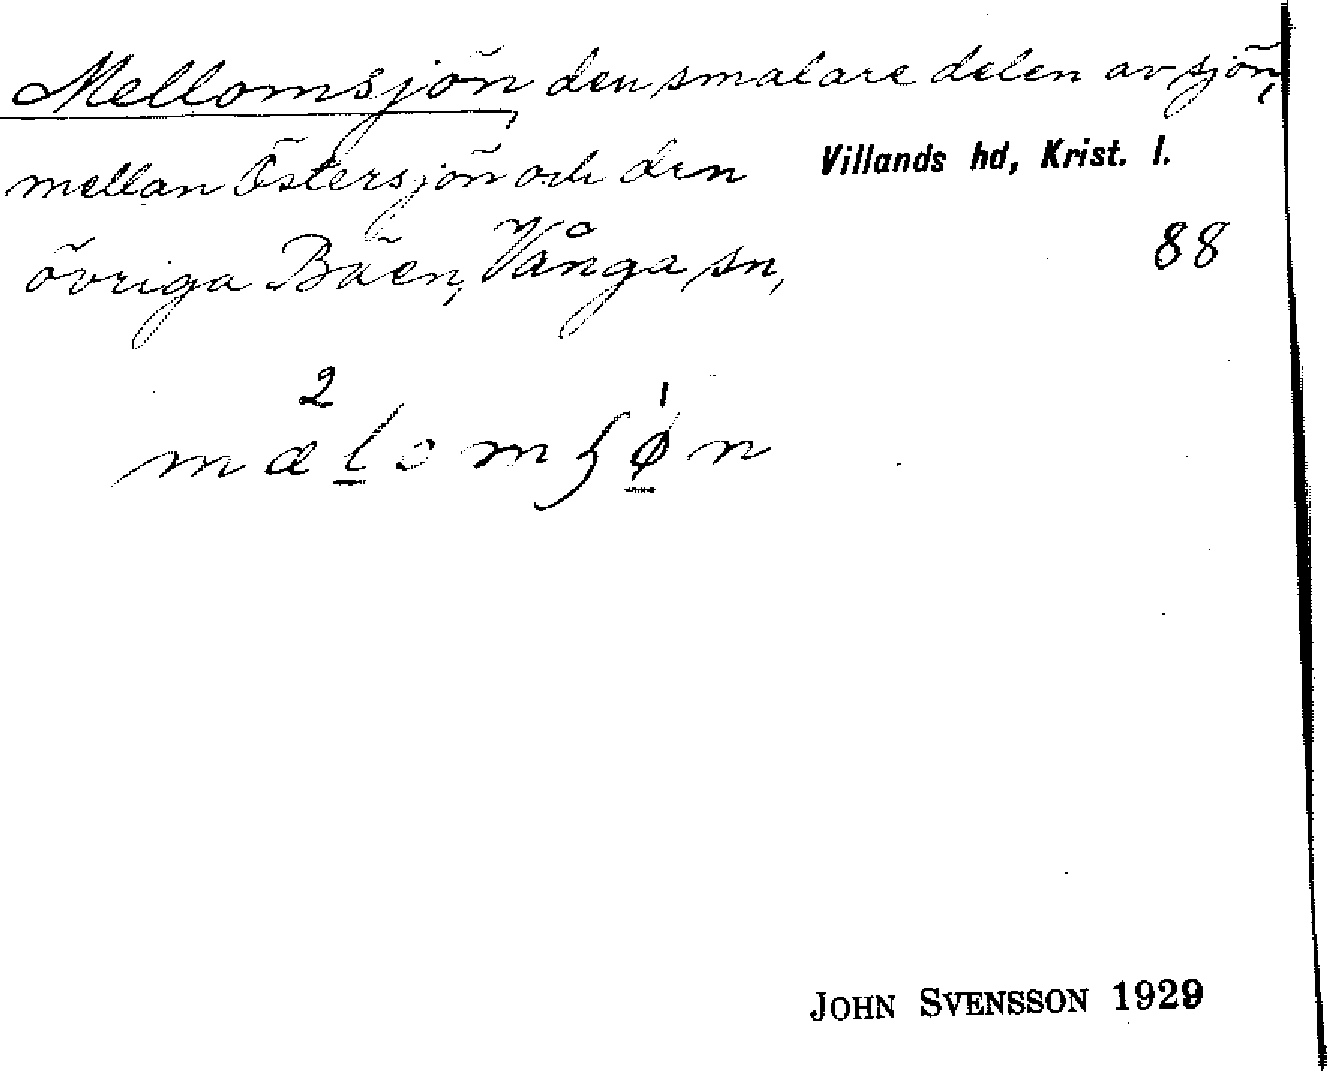 Mellomsjön, den smalare delen av sjön,
mellan Östersjön och den Villands hd, Krist. l.
övriga Bäen, Vånga sn, 88
2 1
mælomʃøn
JOHN SVENSSON 1929